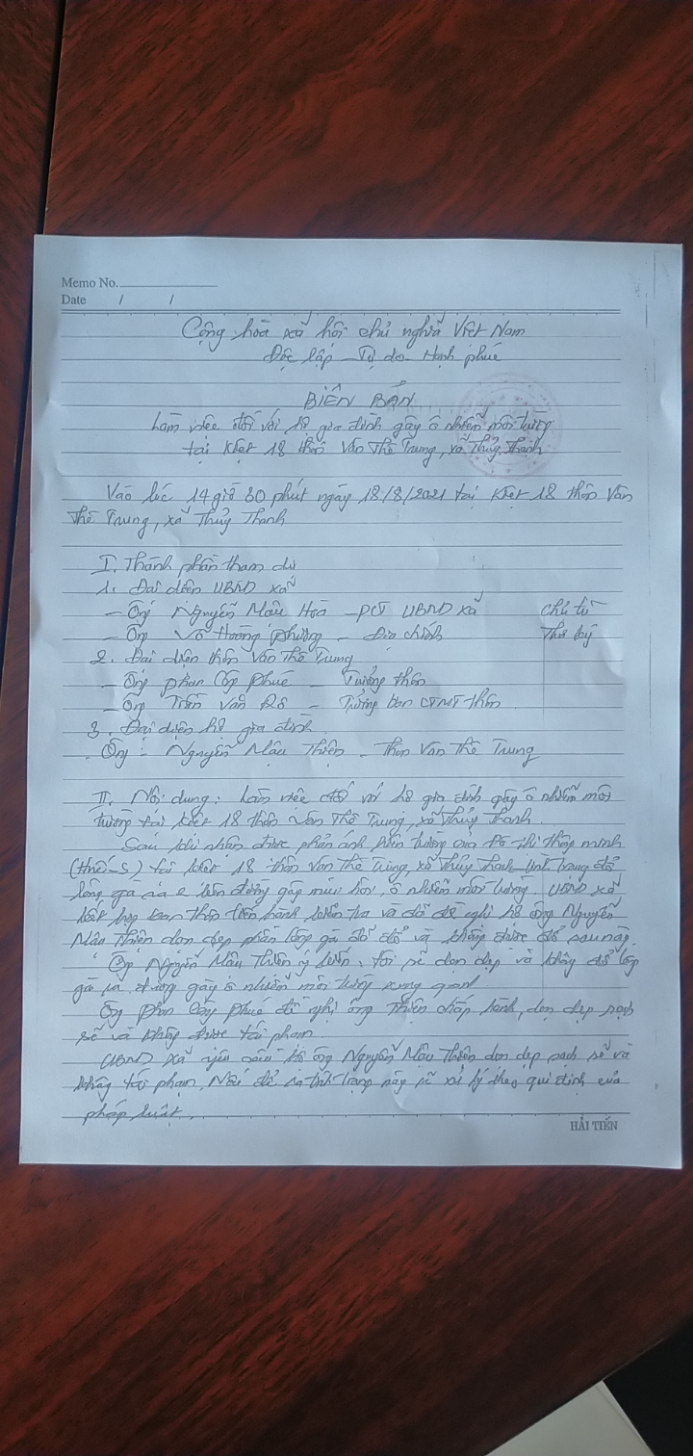 Memo No.
Date / /
Cộng hoà xã hội chủ nghĩa Việt Nam
Độc lập - Tự do - Hạnh phúc
BIÊN BẢN
Làm việc đối với hộ gia đình gây ô nhiễm môi trường
tại Kiệt 18 thôn Vân Thê Trung, xã Thủy Thanh
Vào lúc 14 giờ 30 phút ngày 18/8/2021 tại Kiệt 18 thôn Vân
Thê Trung, xã Thủy Thanh
I. Thành phần tham dự
1. Đại diện UBND xã
- Ông Nguyễn Mậu Hoà - PCT UBND xã Chủ trì
- Ông Võ Hoàng Phương - Địa chính Thư ký
2. Đại diện thôn Vân Thê Trung
- Ông Phan Công Phúc - Trưởng thôn
- Ông Trần Văn - Trưởng ban CTMT thôn
3. Đại diện hộ gia đình
- Ông: Nguyễn Mậu Thiện - Thôn Vân Thê Trung
II. Nội dung: Làm việc đối với hộ gia đình gây ô nhiễm môi
trường tại kiệt 18 thôn Vân Thê Trung, xã Thủy Thanh.
Sau khi nhận được phản ánh hiện trường của Đô thị thông minh
(Huế-S) tại kiệt 18 thôn Vân Thê Trung, xã Thủy Thanh tình trạng đổ
lông gà ra 2 bên đường gây mùi hôi, ô nhiễm môi trường. UBND xã
kết hợp ban thôn tiến hành kiểm tra và đã đề nghị hộ ông Nguyễn
Mậu Thiện dọn dẹp phần lông gà đã đổ và không được đổ sau này.
Ông Nguyễn Mậu Thiện ý kiến: tôi sẽ dọn dẹp và không đổ lông
gà ra đường gây ô nhiễm môi trường xung quanh
Ông Phan Công Phúc đề nghị ông Thiện chấp hành, dọn dẹp sạch
sẽ và không được tái phạm
UBND xã yêu cầu hộ ông Nguyễn Mậu Thiện dọn dẹp sạch sẽ và
không tái phạm, Nếu để ra tình trạng này sẽ xử lý theo qui định của
pháp luật.
HẢI TIẾN